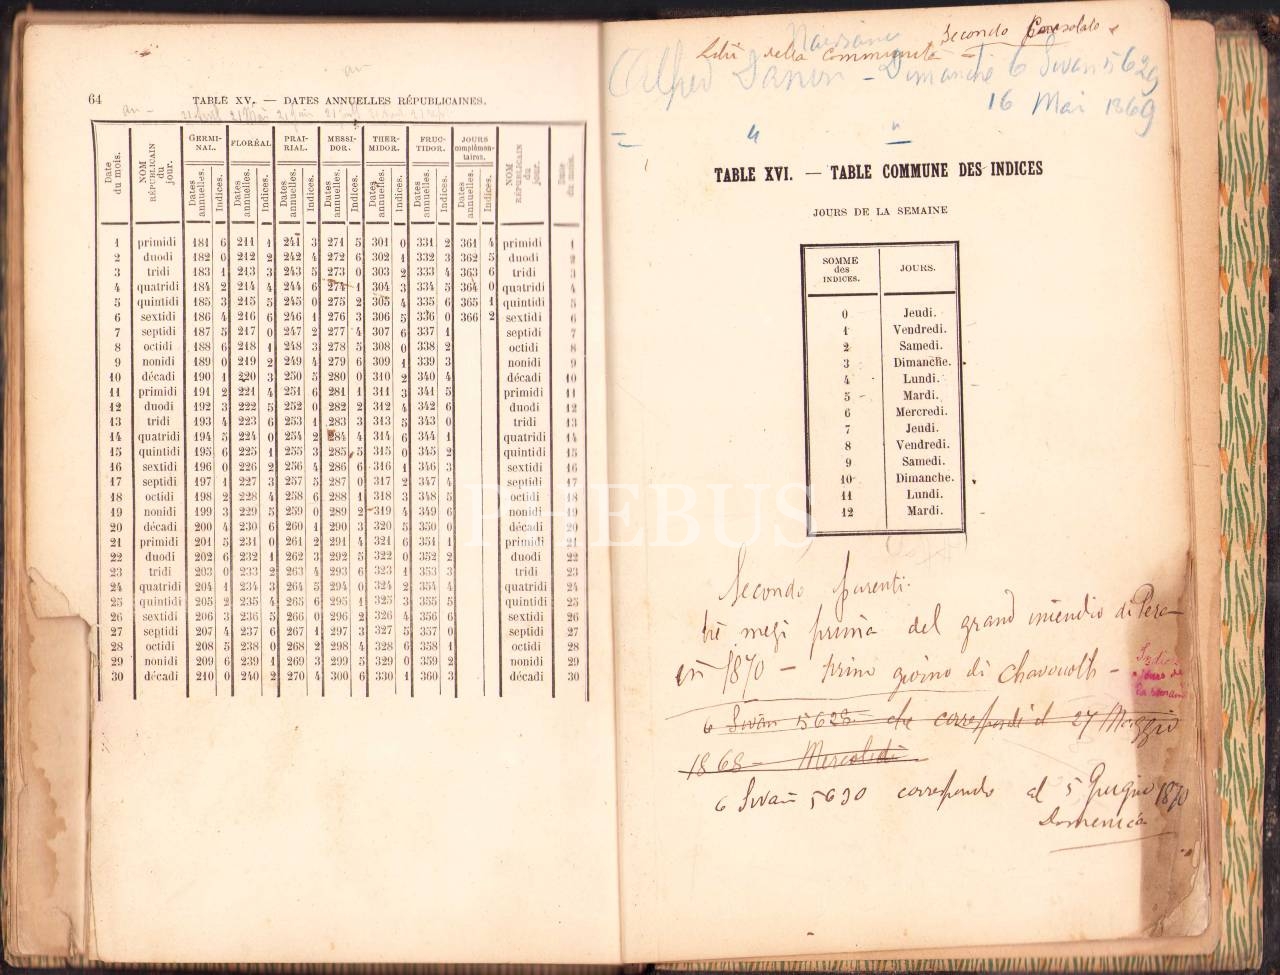 64
TABLE XV. — DATES ANNUELLES RÉPUBLICAINES.
Date du mois. | NOM RÉPUBLICAIN du jour. | GERMINAL. | FLORÉAL | PRAIRIAL. | MESSIDOR. | THERMIDOR. | FRUCTIDOR. | JOURS complémentaires. | NOM RÉPUBLICAIN du jour. | Date du mois.
Dates annuelles. Indices. | Dates annuelles. Indices. | Dates annuelles. Indices. | Dates annuelles. Indices. | Dates annuelles. Indices. | Dates annuelles. Indices. | Dates annuelles. Indices.
1 primidi 181 6 211 1 241 3 271 5 301 0 331 2 361 4 primidi 1
2 duodi 182 0 212 2 242 4 272 6 302 1 332 3 362 5 duodi 2
3 tridi 183 1 213 3 243 5 273 0 303 2 333 4 363 6 tridi 3
4 quatridi 184 2 214 4 244 6 274 1 304 3 334 5 364 0 quatridi 4
5 quintidi 185 3 215 5 245 0 275 2 305 4 335 6 365 1 quintidi 5
6 sextidi 186 4 216 6 246 1 276 3 306 5 336 0 366 2 sextidi 6
7 septidi 187 5 217 0 247 2 277 4 307 6 337 1 septidi 7
8 octidi 188 6 218 1 248 3 278 5 308 0 338 2 octidi 8
9 nonidi 189 0 219 2 249 4 279 6 309 1 339 3 nonidi 9
10 décadi 190 1 220 3 250 5 280 0 310 2 340 4 décadi 10
11 primidi 191 2 221 4 251 6 281 1 311 3 341 5 primidi 11
12 duodi 192 3 222 5 252 0 282 2 312 4 342 6 duodi 12
13 tridi 193 4 223 6 253 1 283 3 313 5 343 0 tridi 13
14 quatridi 194 5 224 0 254 2 284 4 314 6 344 1 quatridi 14
15 quintidi 195 6 225 1 255 3 285 5 315 0 345 2 quintidi 15
16 sextidi 196 0 226 2 256 4 286 6 316 1 346 3 sextidi 16
17 septidi 197 1 227 3 257 5 287 0 317 2 347 4 septidi 17
18 octidi 198 2 228 4 258 6 288 1 318 3 348 5 octidi 18
19 nonidi 199 3 229 5 259 0 289 2 319 4 349 6 nonidi 19
20 décadi 200 4 230 6 260 1 290 3 320 5 350 0 décadi 20
21 primidi 201 5 231 0 261 2 291 4 321 6 351 1 primidi 21
22 duodi 202 6 232 1 262 3 292 5 322 0 352 2 duodi 22
23 tridi 203 0 233 2 263 4 293 6 323 1 353 3 tridi 23
24 quatridi 204 1 234 3 264 5 294 0 324 2 354 4 quatridi 24
25 quintidi 205 2 235 4 265 6 295 1 325 3 355 5 quintidi 25
26 sextidi 206 3 236 5 266 0 296 2 326 4 356 6 sextidi 26
27 septidi 207 4 237 6 267 1 297 3 327 5 357 0 septidi 27
28 octidi 208 5 238 0 268 2 298 4 328 6 358 1 octidi 28
29 nonidi 209 6 239 1 269 3 299 5 329 0 359 2 nonidi 29
30 décadi 210 0 240 2 270 4 300 6 330 1 360 3 décadi 30
Secondo Consolato e
Libri della Communità
Alfred — Dimanche 6 Sivan 5629
16 Mai 1869
TABLE XVI. — TABLE COMMUNE DES INDICES
JOURS DE LA SEMAINE
SOMME des INDICES. | JOURS.
0 Jeudi.
1 Vendredi.
2 Samedi.
3 Dimanche.
4 Lundi.
5 Mardi.
6 Mercredi.
7 Jeudi.
8 Vendredi.
9 Samedi.
10 Dimanche.
11 Lundi.
12 Mardi.
PHEBUS
Secondo parenti.
tre mesi prima del grand incendio di Pera
in 1870 — primo giorno di Chavouoth —
6 Sivan 5628 che corresponde il 27 Maggio
1868 — Mercoledi
6 Sivan 5630 correspondo al 5 Giugno 1870
Domenica